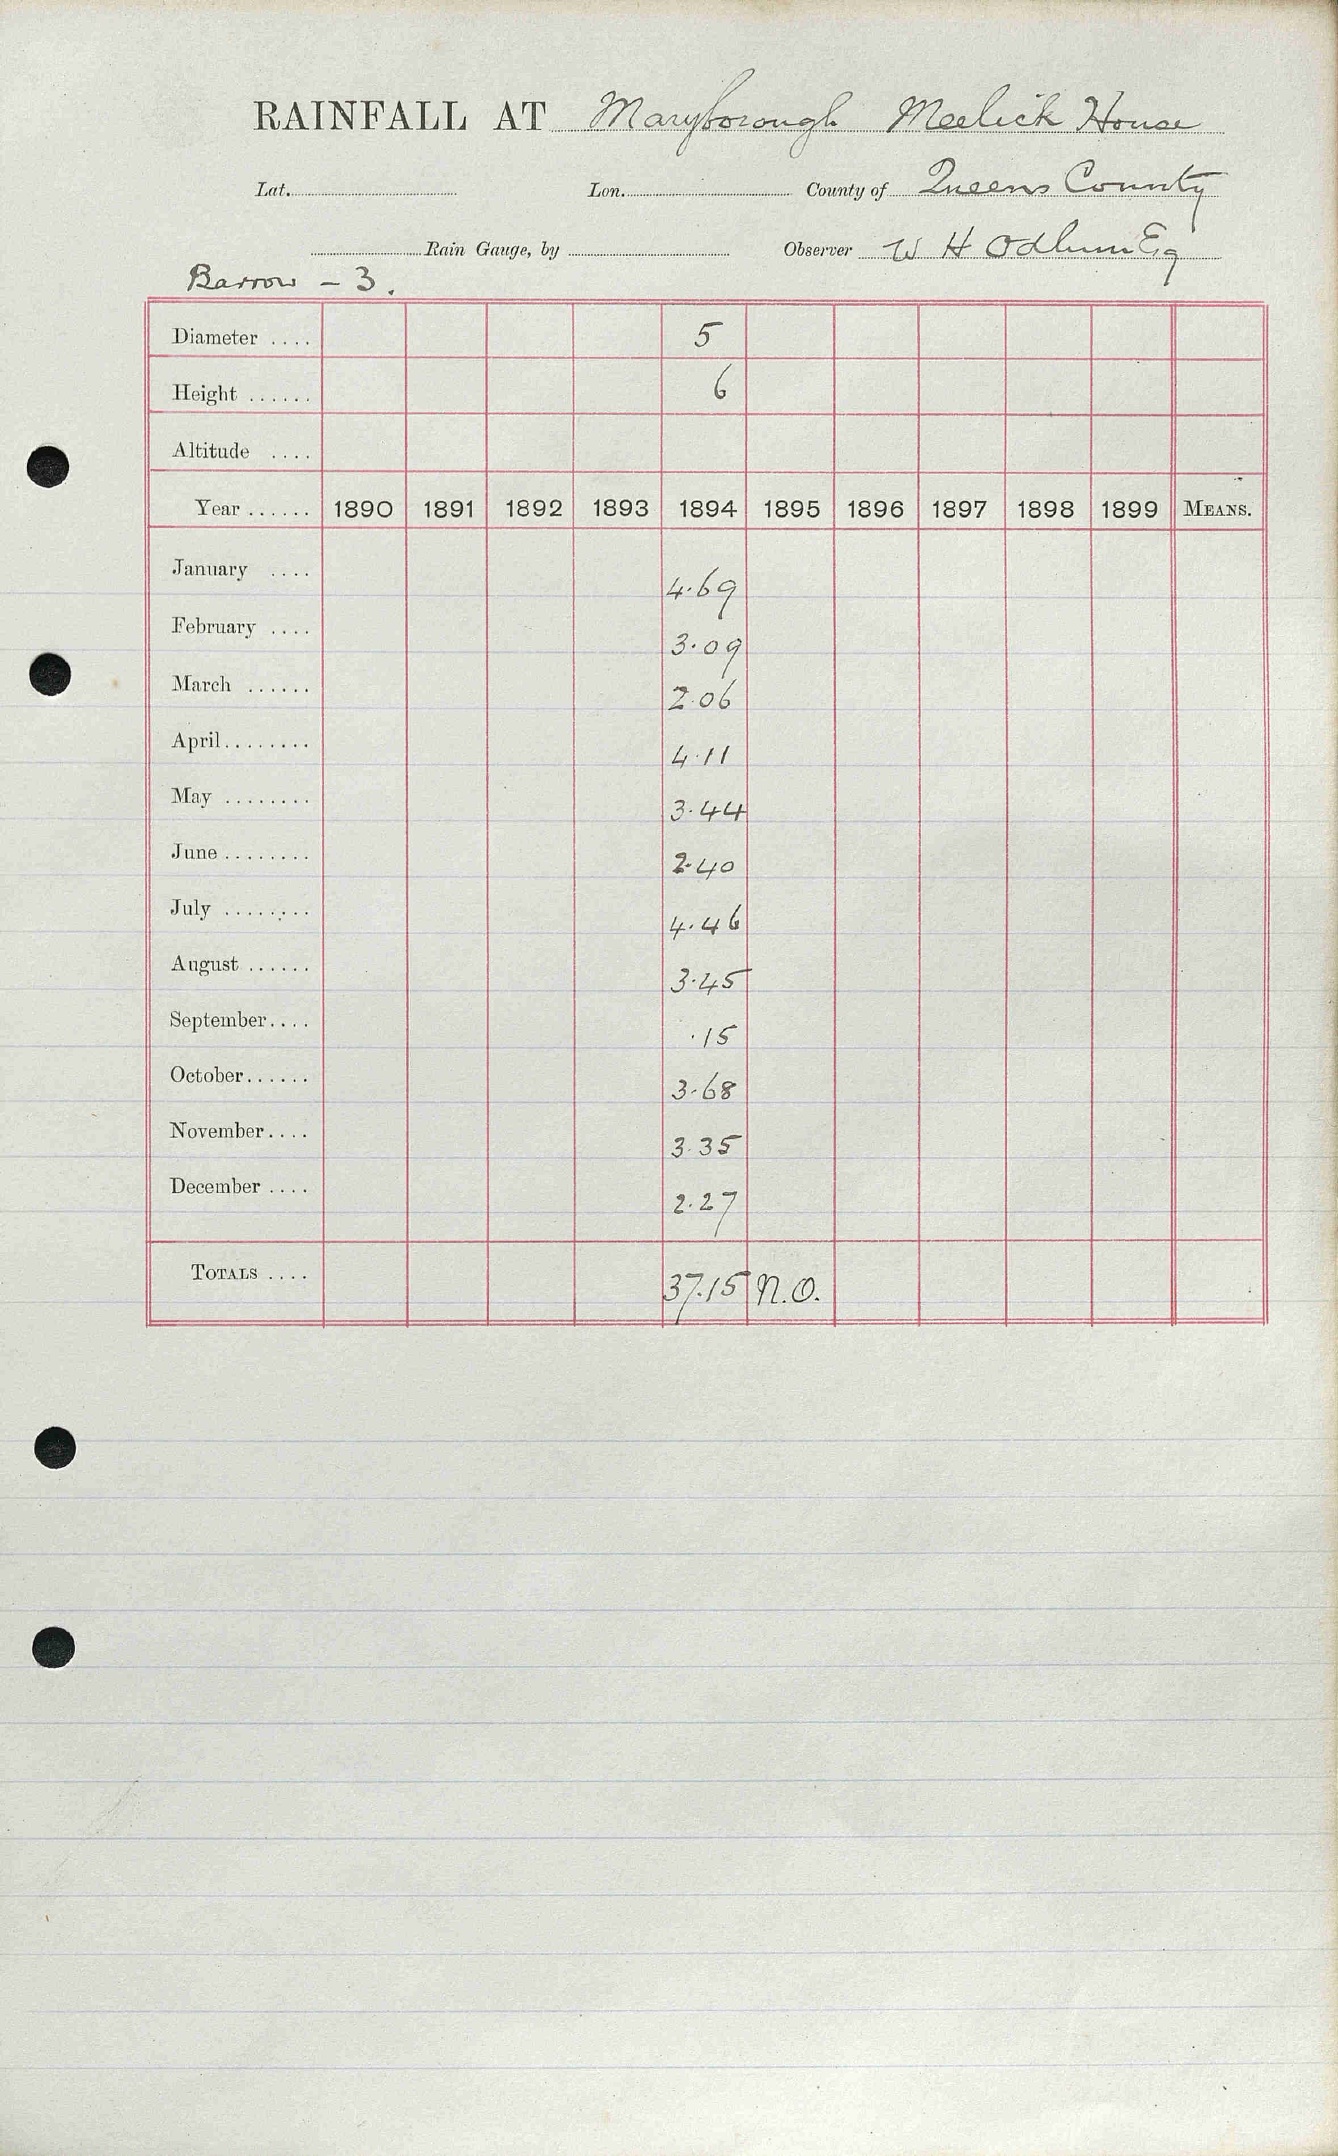 RAINFALL AT Maryborough Meelick House
Lat. Lon. County of Queens County
Rain Gauge, by Observer W H Odlum Esq
Barrow - 3.
Diameter .... 5
Height ...... 6
Altitude ....
Year ...... 1890 1891 1892 1893 1894 1895 1896 1897 1898 1899 MEANS.
January .... 4.69
February .... 3.09
March ...... 2.06
April........ 4.11
May ........ 3.44
June ........ 2.40
July ........ 4.46
August ...... 3.45
September.... .15
October...... 3.68
November.... 3.35
December .... 2.27
TOTALS .... 37.15 N.O.